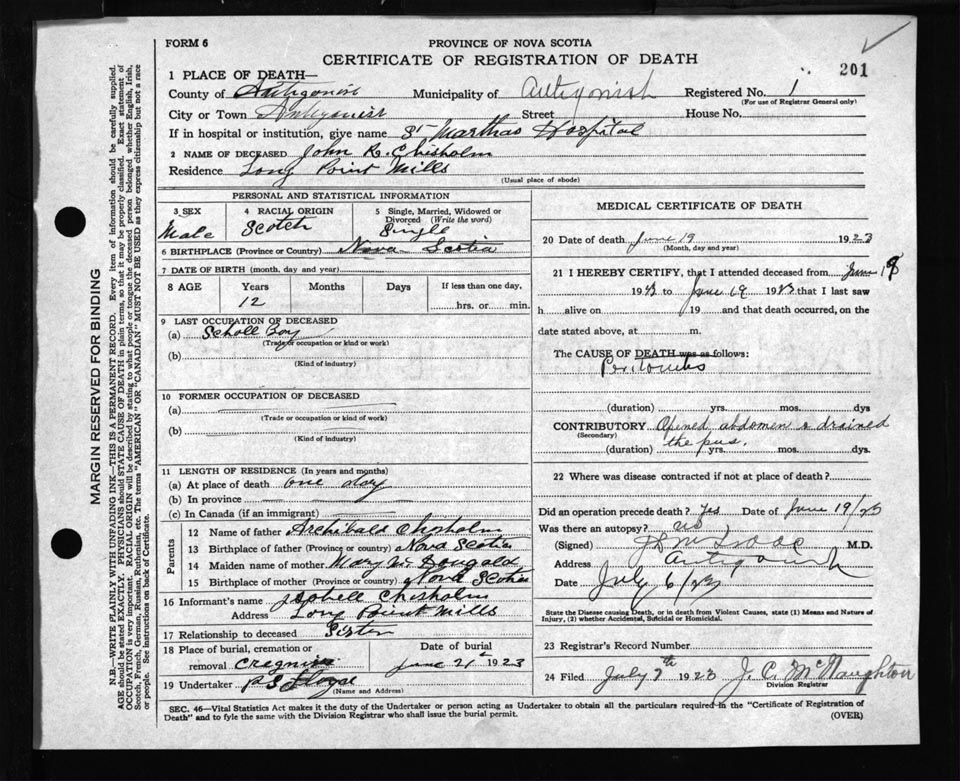 FORM 6
PROVINCE OF NOVA SCOTIA
CERTIFICATE OF REGISTRATION OF DEATH
201
1 PLACE OF DEATH—
County of Antigonish Municipality of Antigonish Registered No. 1
(For use of Registrar General only)
City or Town Antigonish Street House No.
If in hospital or institution, give name St Marthas Hospital
2 NAME OF DECEASED John R. Chisholm
Residence Long Point Mills
(Usual place of abode)
PERSONAL AND STATISTICAL INFORMATION
3 SEX Male
4 RACIAL ORIGIN Scotch
5 Single, Married, Widowed or Divorced (Write the word) Single
6 BIRTHPLACE (Province or Country) Nova Scotia
7 DATE OF BIRTH (month, day and year)
8 AGE Years Months Days If less than one day,
12 hrs. or min.
9 LAST OCCUPATION OF DECEASED
(a) Scholl Boy
(Trade or occupation or kind of work)
(b)
(Kind of industry)
10 FORMER OCCUPATION OF DECEASED
(a)
(Trade or occupation or kind of work)
(b)
(Kind of industry)
11 LENGTH OF RESIDENCE (In years and months)
(a) At place of death one day
(b) In province
(c) In Canada (if an immigrant)
Parents
12 Name of father Archibald Chisholm
13 Birthplace of father (Province or country) Nova Scotia
14 Maiden name of mother Mary McDougald
15 Birthplace of mother (Province or country) Nova Scotia
16 Informant's name Chisholm
Address Long Point Mills
17 Relationship to deceased Sister
18 Place of burial, cremation or removal
Date of burial
June 21 1923
19 Undertaker
(Name and Address)
MEDICAL CERTIFICATE OF DEATH
20 Date of death June 19 1923
(Month, day and year)
21 I HEREBY CERTIFY, that I attended deceased from June 19
1923 to June 19 1923 that I last saw
h alive on 19 and that death occurred, on the
date stated above, at m.
The CAUSE OF DEATH was as follows:
Peritonitis
(duration) yrs. mos. dys
CONTRIBUTORY Opened abdomen & drained
(Secondary) the pus.
(duration) yrs. mos. dys.
22 Where was disease contracted if not at place of death?
Did an operation precede death? Yes Date of June 19/23
Was there an autopsy? no
(Signed) M.D.
Address Antigonish
Date July 6/23
State the Disease causing Death, or in death from Violent Causes, state (1) Means and Nature of
Injury, (2) whether Accidental, Suicidal or Homicidal.
23 Registrar's Record Number
24 Filed July 7th 1923 J. C. McNaughton
Division Registrar
SEC. 46—Vital Statistics Act makes it the duty of the Undertaker or person acting as Undertaker to obtain all the particulars required in the "Certificate of Registration of
Death" and to fyle the same with the Division Registrar who shall issue the burial permit.
(OVER)
MARGIN RESERVED FOR BINDING
N.B.—WRITE PLAINLY WITH UNFADING INK—THIS IS A PERMANENT RECORD. Every item of information should be carefully supplied.
AGE should be stated EXACTLY. PHYSICIANS should STATE CAUSE OF DEATH in plain terms, so that it may be properly classified. Exact statement of
OCCUPATION is very important. RACIAL ORIGIN will be described by stating to what people or tongue the deceased person belonged whether English, Irish,
Scotch, French, German, Russian, Ruthenian, etc. The terms "AMERICAN" OR "CANADIAN" MUST NOT BE USED as they express citizenship but not a race
or people. See instructions on back of Certificate.